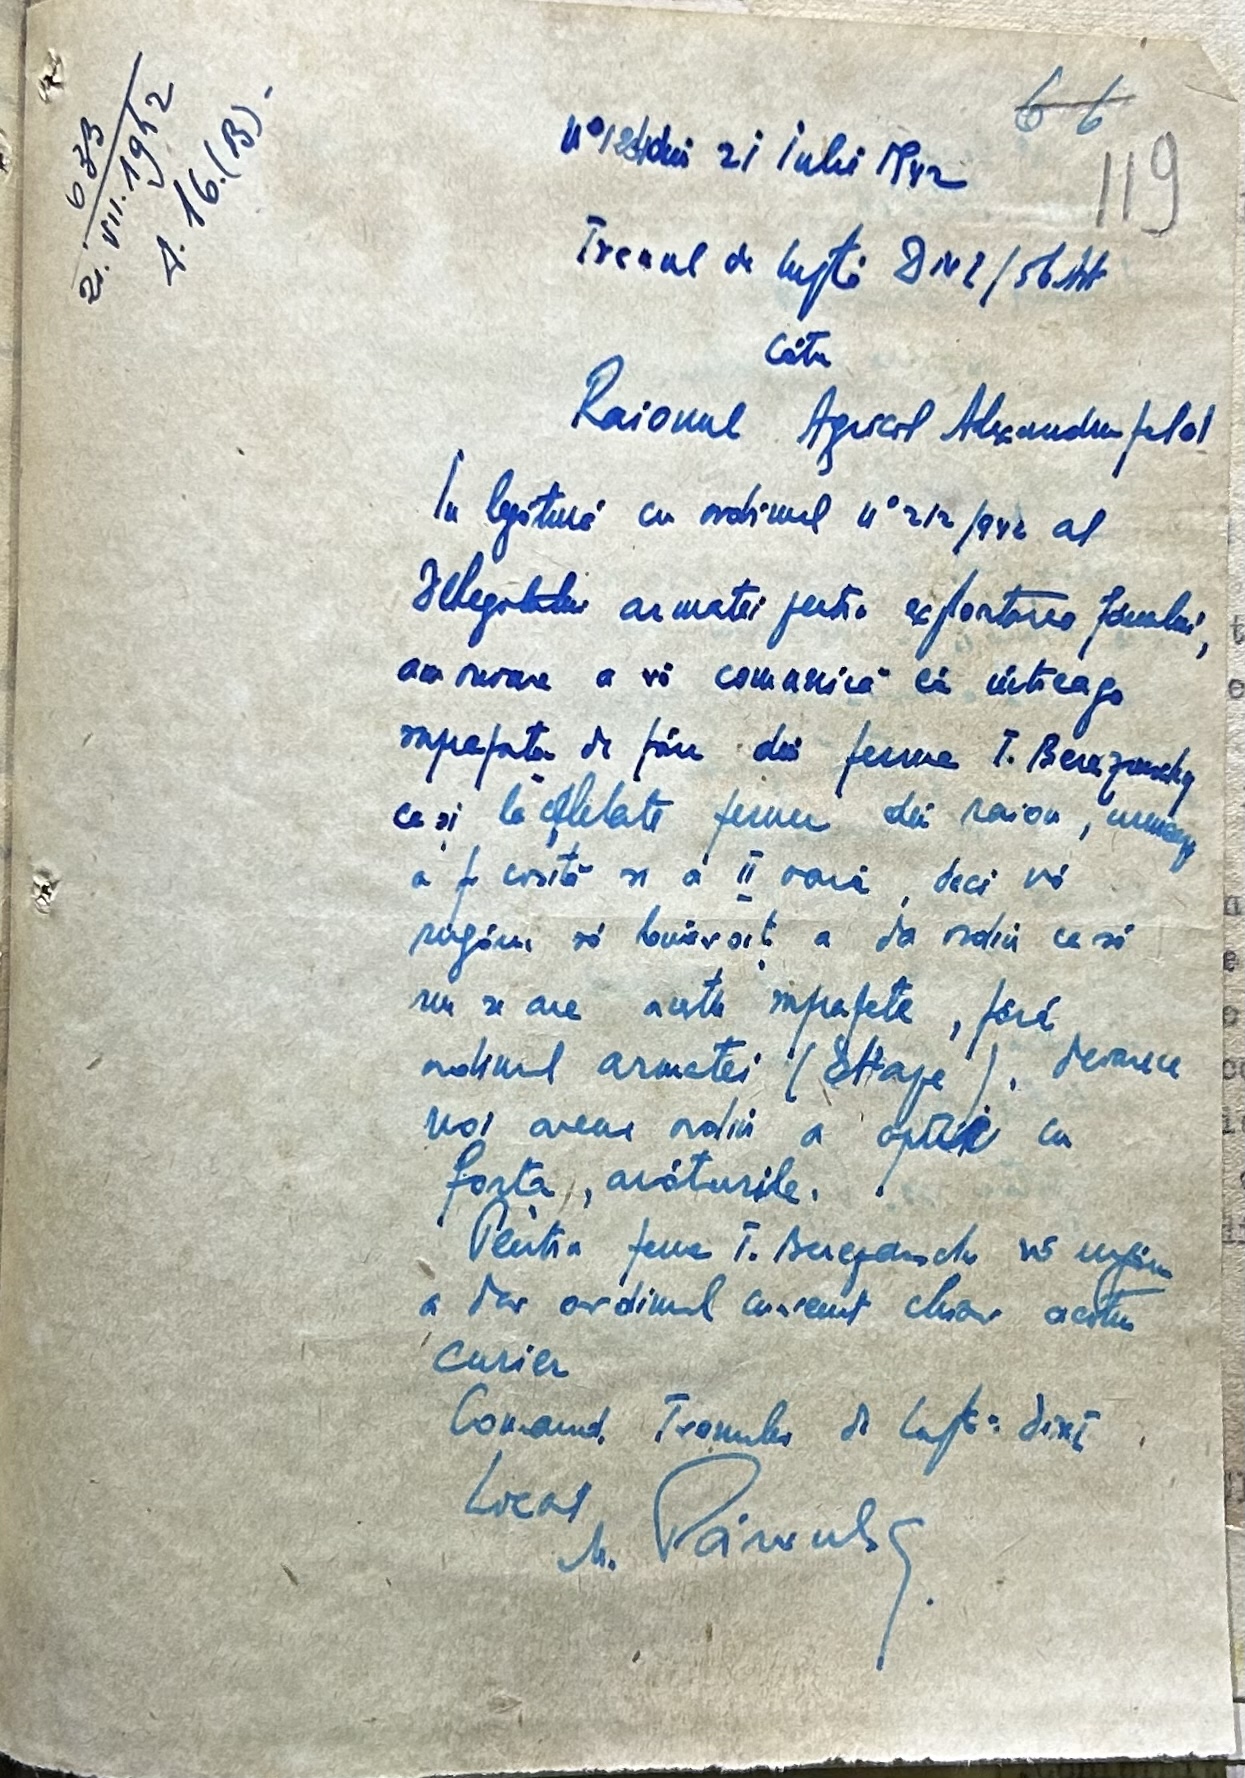 633
21. VII. 1942
A. 16. (B).
66
119
Nº din 21 Iulie 942
Trenul de luptă Div I
Către
Raionul Agricol Alexandrufeld
În legătură cu ordinul nº 212/942 al
Delegatului armatei pentru exploatarea fânului,
am onoare a vă comunică că intreaga
suprafața de fân din ferma T. Berezansky
ca și la celelate ferme din raion, urmează
a fi cosită și a II oară, deci vă
rugăm să binevoiți a da ordin ca să
nu se are aceste suprafețe, fără
ordinul armatei (Ettape), deoarece
noi avem ordin a opri cu
forța, arăturile.
Pentru ferma T. Berezansky vă rugăm
a da ordinul chiar acestui
curier
Comand. Trenului de luptă Div I
Locot.